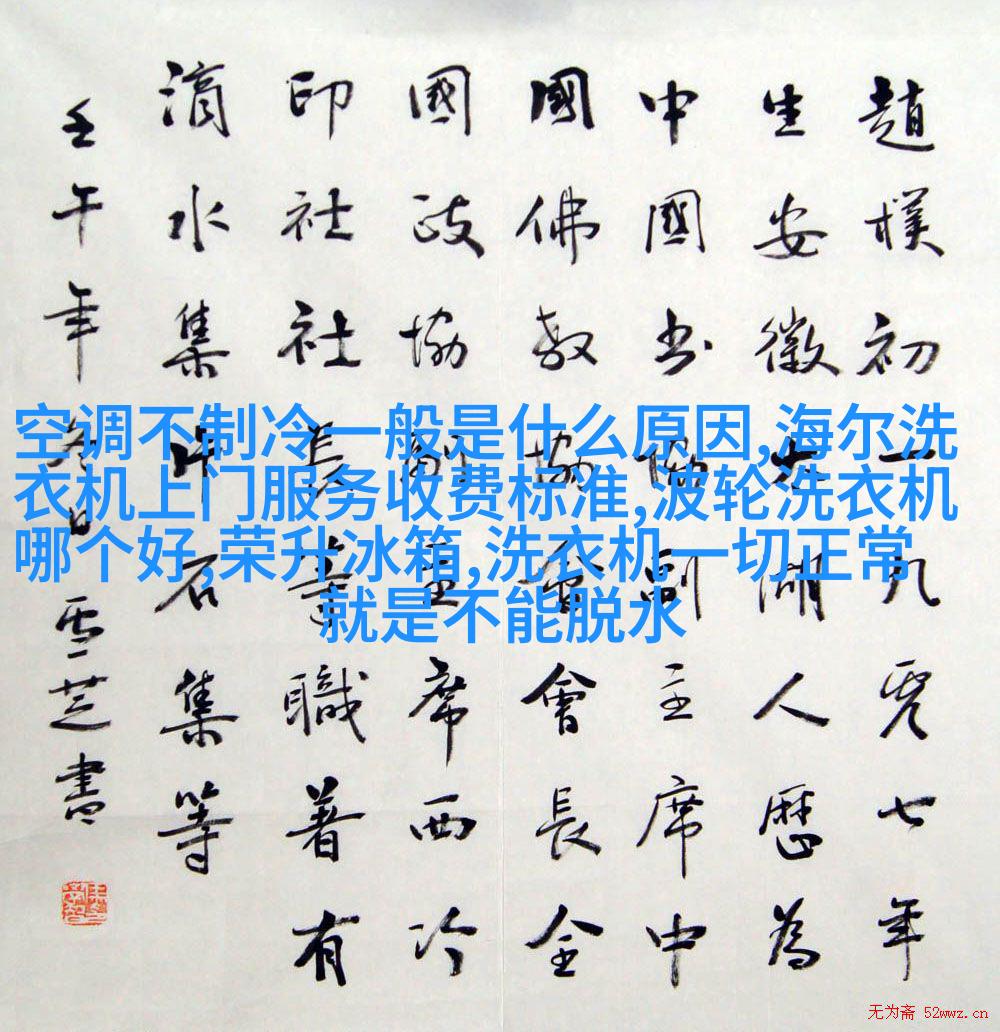 趙樸初一九零七年
生安徽太湖人歷為
中國书協副主席中
國佛教協會會長全
國政協副主席西冷
印社社長等職著有
滴水集片石集等
壬午年冬日雪芝書
空调不制冷一般是什么原因,海尔洗
衣机上门服务收费标准,波轮洗衣机
哪个好,荣升冰箱,洗衣机一切正常
就是不能脱水
无为斋 52wwz.cn